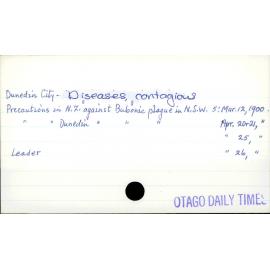 Dunedin City - Diseases, contagious
Precautions in N.Z. against Bubonic plague in N.S.W. 5: Mar. 12, 1900.
" " Dunedin " " " Apr. 20+21, "
" 25, "
Leader " 26, "
OTAGO DAILY TIMES